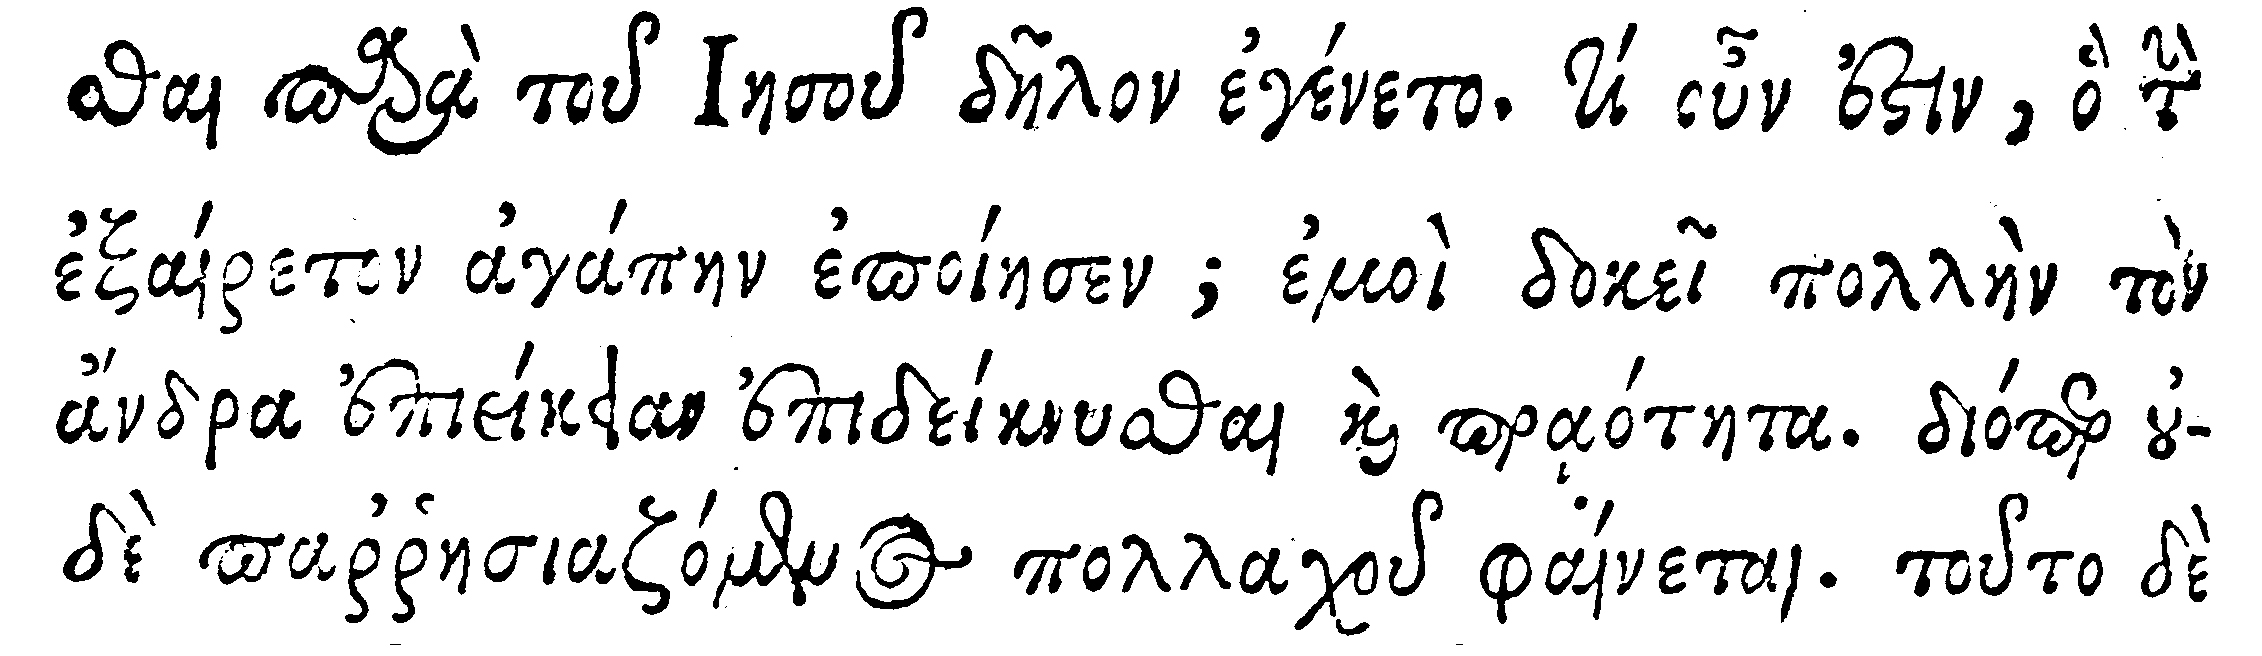 σθαι παρὰ τοῦ Ἰησοῦ δῆλον ἐγένετο. τί οὖν ἐστιν, ὃ τὸ
ἐξαίρετον ἀγάπην ἐποίησεν; ἐμοὶ δοκεῖ πολλὴν τὸν
ἄνδρα ἐπιείκειαν ἐπιδείκνυσθαι καὶ πραότητα. διόπερ οὐ-
δὲ παῤῥησιαζόμενος πολλαχοῦ φαίνεται. τοῦτο δὲ